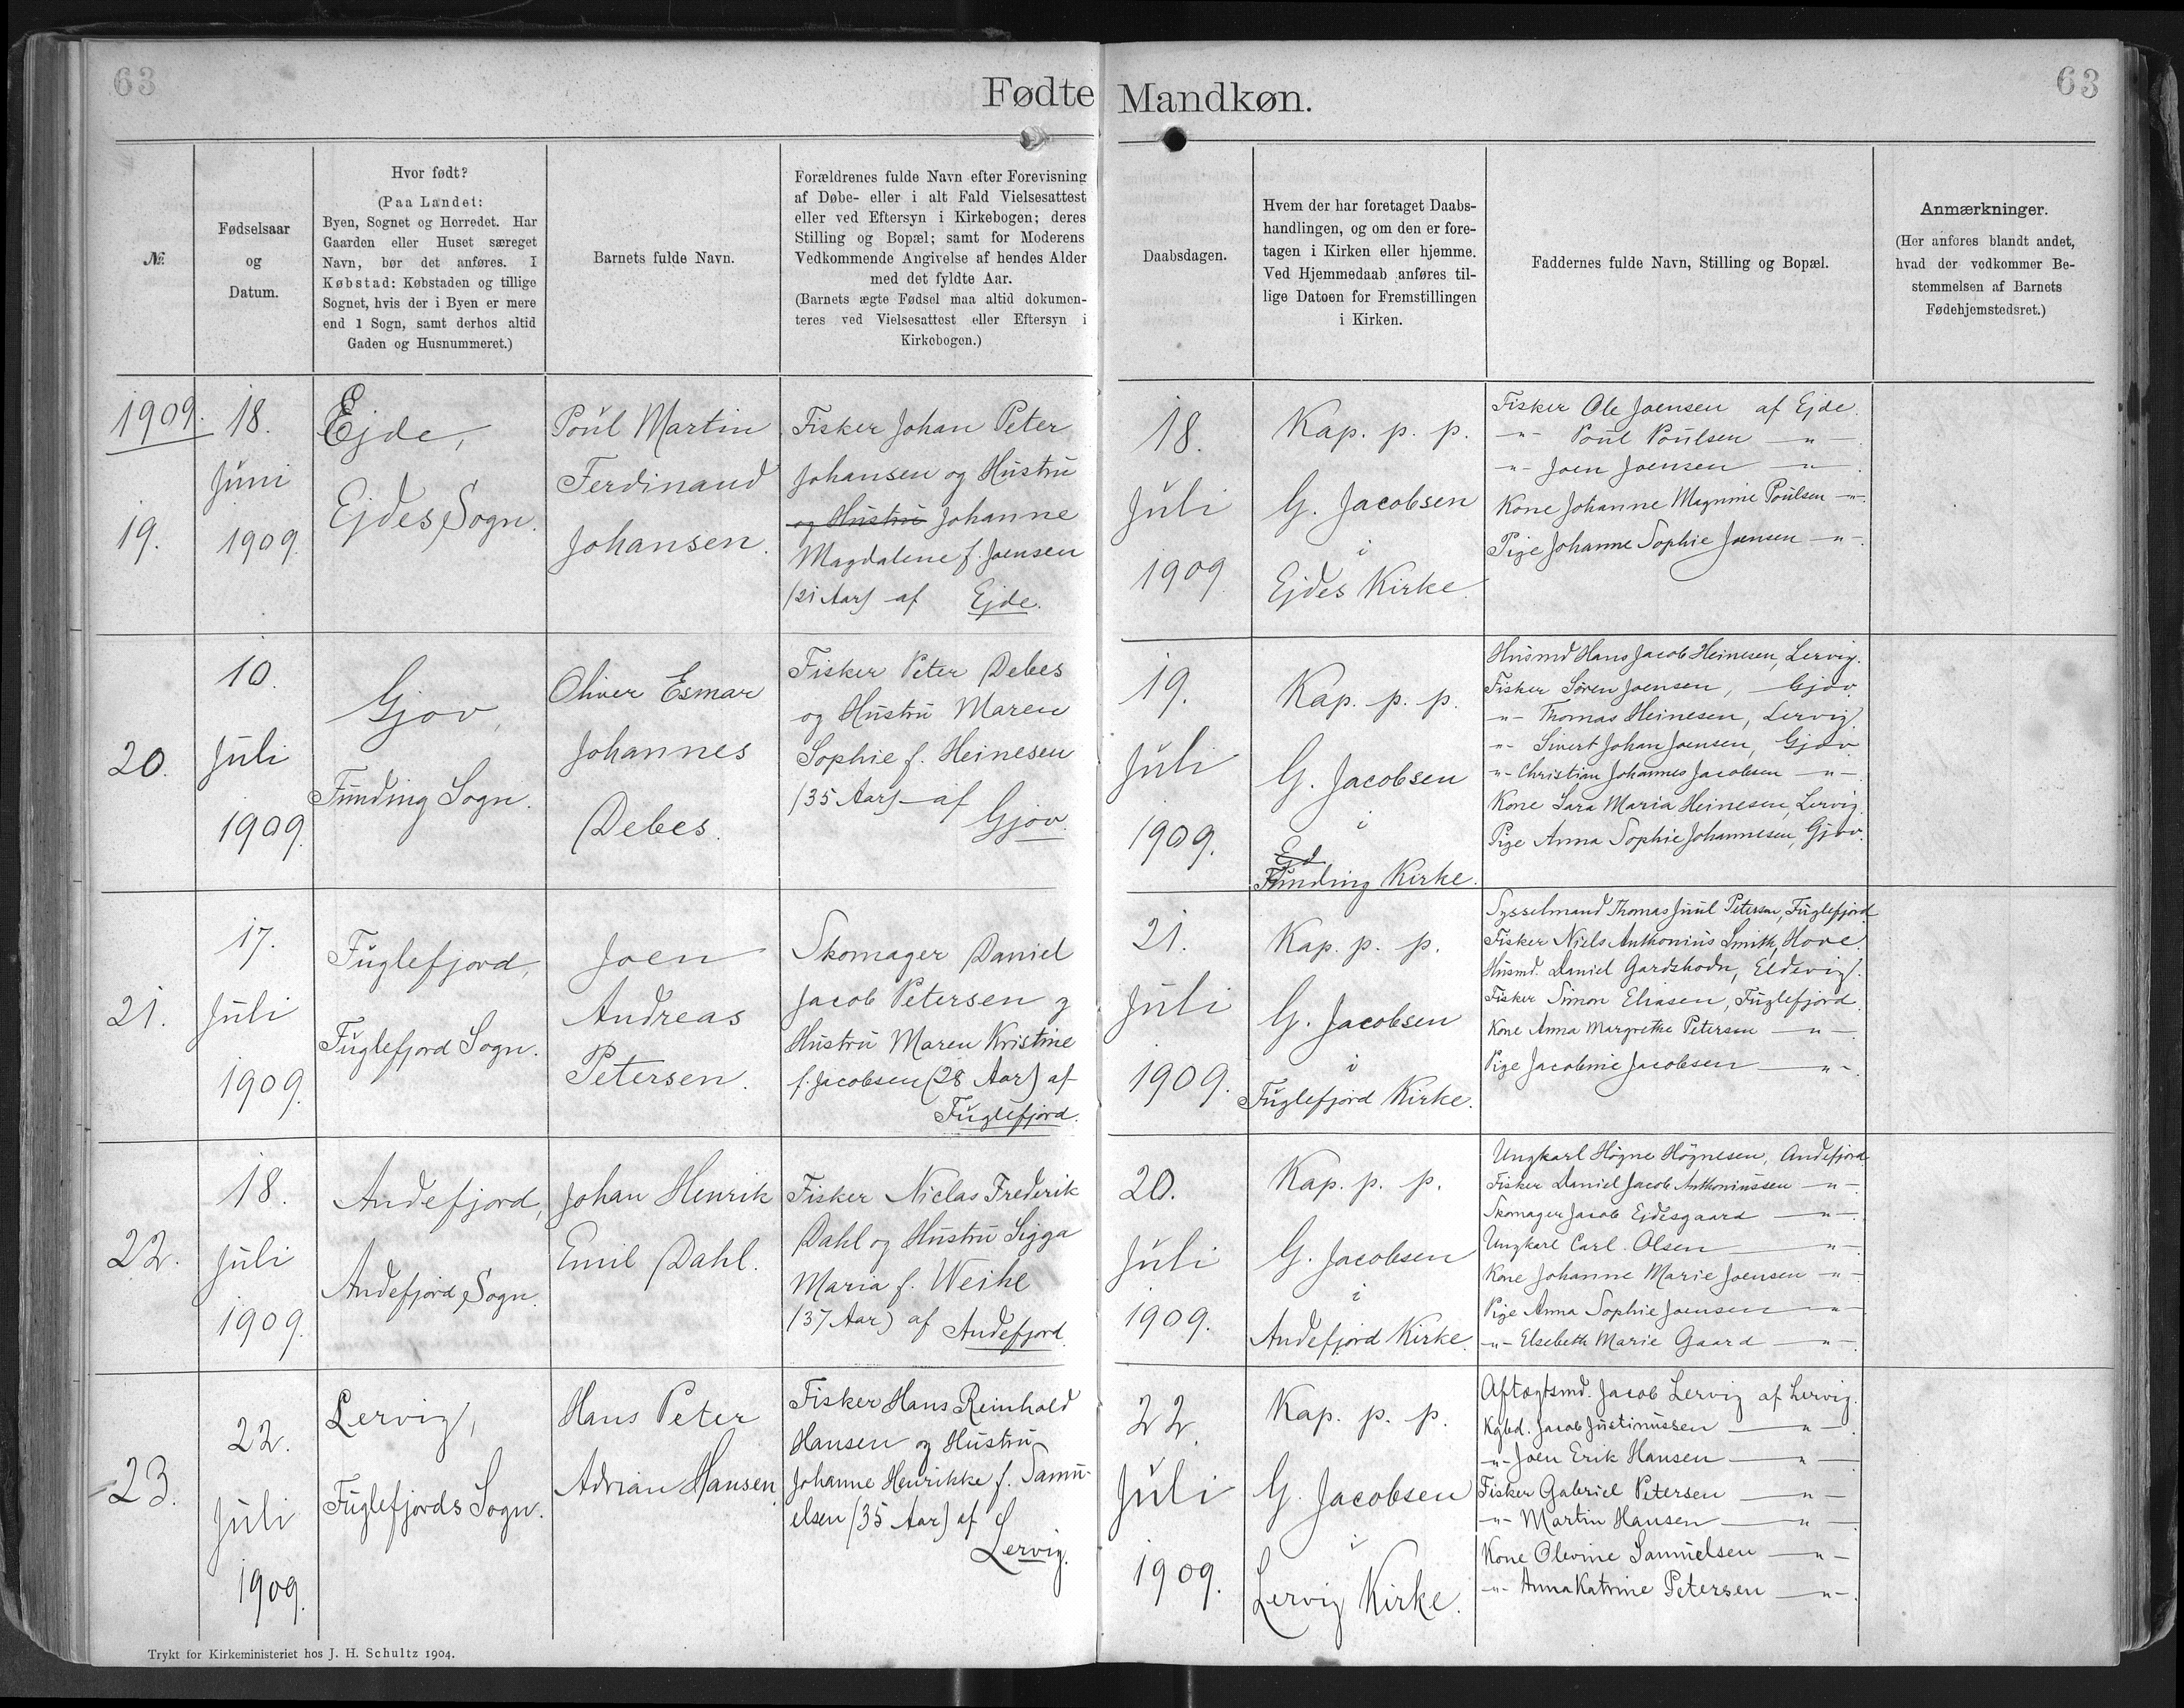 63
63
Fødte Mandkøn.
№
Fødselsaar
og
Datum.
Hvor født?
(Paa Landet:
Byen, Sognet og Herredet. Har
Gaarden eller Huset særeget
Navn, bør det anføres. I
Købstad: Købstaden og tillige
Sognet, hvis der i Byen er mere
end 1 Sogn, samt derhos altid
Gaden og Husnummeret.)
Barnets fulde Navn.
Forældrenes fulde Navn efter Forevisning
af Døbe- eller i alt Fald Vielsesattest
eller ved Eftersyn i Kirkebogen; deres
Stilling og Bopæl; samt for Moderens
Vedkommende Angivelse af hendes Alder
med det fyldte Aar.
(Barnets ægte Fødsel maa altid dokumen-
teres ved Vielsesattest eller Eftersyn i
Kirkebogen.)
Daabsdagen.
Hvem der har foretaget Daabs-
handlingen, og om den er fore-
tagen i Kirken eller hjemme.
Ved Hjemmedaab anføres til-
lige Datoen for Fremstillingen
i Kirken.
Faddernes fulde Navn, Stilling og Bopæl.
Anmærkninger.
(Her anføres blandt andet,
hvad der vedkommer Be-
stemmelsen af Barnets
Fødehjemstedsret.)
1909.
19.
18.
Juni
1909.
Ejde,
Ejdes Sogn.
Poul Martin
Ferdinand
Johansen.
Fisker Johan Peter
Johansen og Hustru
og Hustru Johanne
Magdalene f. Joensen
(21 Aar) af Ejde.
18.
Juli
1909
Kap. p. p.
G. Jacobsen
i
Ejdes Kirke.
Fisker Ole Joensen af Ejde.
-"- Poul Poulsen -"-
-"- Joen Joensen -"-
Kone Johanne Magnine Poulsen -"-
Pige Johanne Sophie Joensen -"-
20.
10.
Juli
1909.
Gjov,
Funding Sogn.
Oliver Esmar
Johannes
Debes.
Fisker Peter Debes
og Hustru Maren
Sophie f. Heinesen
(35 Aar) af
Gjov.
19.
Juli
1909.
Kap. p. p.
G. Jacobsen
i
Ejd
Funding Kirke.
Husmd Hans Jacob Heinesen, Lervig.
Fisker Sören Joensen, Gjov.
-"- Thomas Heinesen, Lervig.
-"- Sivert Johan Joensen, Gjov
-"- Christian Johannes Jacobsen -"-
Kone Sara Maria Heinesen, Lervig
Pige Anna Sophie Johannesen, Gjov.
21.
17.
Juli
1909.
Fuglefjord,
Fuglefjord Sogn.
Joen
Andreas
Petersen.
Skomager Daniel
Jacob Petersen og
Hustru Maren Kristine
f. Jacobsen (28 Aar) af
Fuglefjord.
21.
Juli
1909.
Kap. p. p.
G. Jacobsen
i
Fuglefjord Kirke.
Sysselmand Thomas Juul Petersen, Fuglefjord
Fisker Niels Anthonius Smith, Hove.
Husmd. Daniel Gardshodn, Eldevig.
Fisker Simon Eliasen, Fuglefjord.
Kone Anna Margrethe Petersen -"-
Pige Jacobine Jacobsen -"-
22.
18.
Juli
1909.
Andefjord,
Andefjord Sogn.
Johan Henrik
Emil Dahl.
Fisker Niclas Frederik
Dahl og Hustru Sigga
Maria f. Weihe
(37 Aar) af Andefjord
20.
Juli
1909.
Kap. p. p.
G. Jacobsen
i
Andefjord Kirke.
Ungkarl Högne Högnesen, Andefjord
Fisker Daniel Jacob Anthoniussen -"-
Skomager Jacob Ejdesgaard -"-
Ungkarl Carl Olsen -"-
Kone Johanne Marie Joensen -"-
Pige Anna Sophie Joensen -"-
-"- Elsebeth Marie Gaard -"-
23.
22.
Juli
1909.
Lervig,
Fuglefjords Sogn.
Hans Peter
Adrian Hansen.
Fisker Hans Reinhold
Hansen og Hustru
Johanne Henrikke f. Samu-
elsen (35 Aar) af
Lervig.
22.
Juli
1909.
Kap. p. p.
G. Jacobsen
i
Lervig Kirke.
Aftægtsmd. Jacob Lervig af Lervig.
Kgbd. Jacob Justinussen -"-
-"- Joen Erik Hansen -"-
Fisker Gabriel Petersen -"-
-"- Martin Hansen -"-
Kone Olevine Samuelsen -"-
-"- Anna Katrine Petersen -"-
Trykt for Kirkeministeriet hos J. H. Schultz 1904.